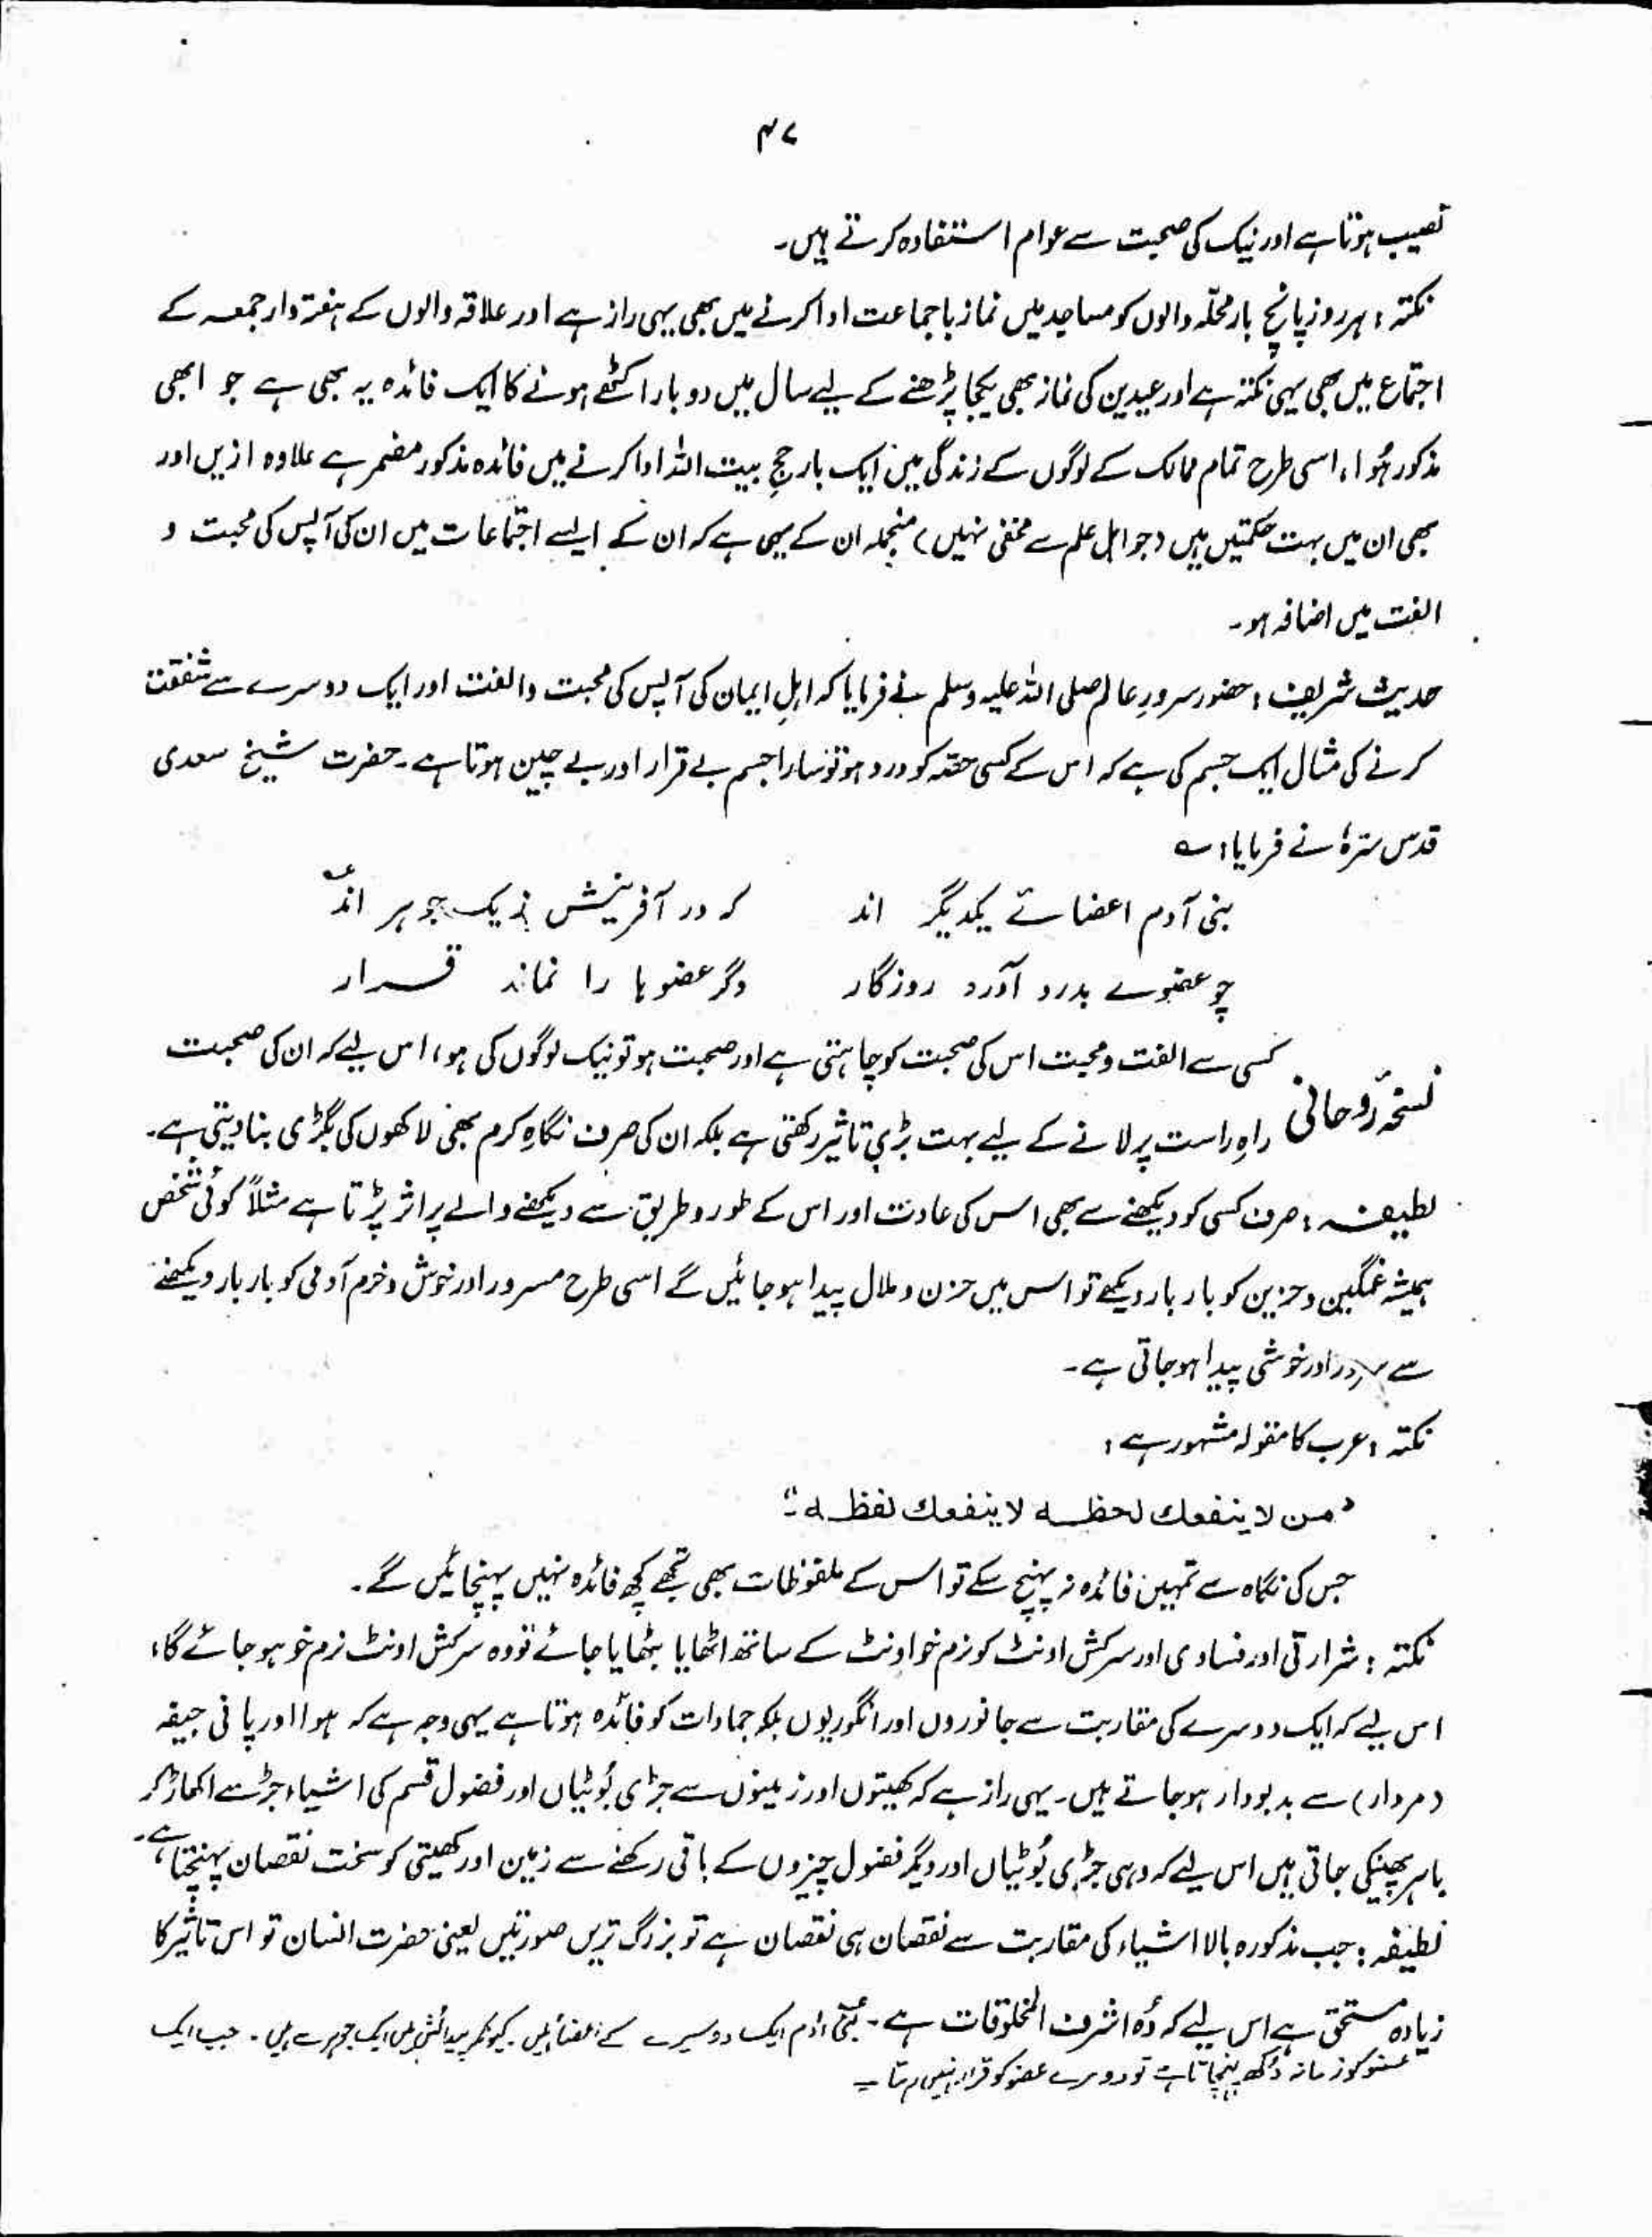 ۴۷
نصیب ہوتا ہے اور نیک کی صحبت سے عوام استفادہ کرتے ہیں۔
نکتہ : ہر روز پانچ بار محلّہ والوں کو مساجد میں نماز باجماعت ادا کرنے میں بھی یہی راز ہے اور علاقہ والوں کے ہفتہ وار جمعہ کے
اجتماع میں بھی یہی نکتہ ہے اور عیدین کی نماز بھی یکجا پڑھنے کے لیے سال میں دو بار اکٹھے ہونے کا ایک فائدہ یہ بھی ہے جو ابھی
مذکور ہُوا ، اسی طرح تمام ممالک کے لوگوں کے زندگی میں ایک بار حجِ بیت اللہ ادا کرنے میں فائدہ مذکور مضمر ہے علاوہ ازیں اور
بھی ان میں بہت حکمتیں ہیں (جو اہل علم سے مخفی نہیں) منجملہ ان کے یہی ہے کہ ان کے ایسے اجتماعات میں ان کی آپس کی محبت و
الفت میں اضافہ ہو۔
حدیث شریف : حضور سرورِ عالم صلی اللہ علیہ وسلم نے فرمایا کہ اہلِ ایمان کی آپس کی محبت و الفت اور ایک دوسرے سے شفقت
کرنے کی مثال ایک جسم کی ہے کہ اس کے کسی حصّہ کو درد ہو تو سارا جسم بے قرار اور بے چین ہوتا ہے۔ حضرت شیخ سعدی
قدس سرّہٗ نے فرمایا : ؎
بنی آدم اعضائے یکدیگر اند کہ در آفرینش زیک جوہر اند؏
چو عضوے بدرد آورد روزگار دگر عضوہا را نماند قرار
نسخۂ رُوحانی کسی سے الفت و محبت اس کی صحبت کو چاہتی ہے اور صحبت ہو تو نیک لوگوں کی ہو، اس لیے کہ ان کی صحبت
راہِ راست پر لانے کے لیے بہت بڑی تاثیر رکھتی ہے بلکہ ان کی صرف نگاہِ کرم بھی لاکھوں کی بگڑی بنا دیتی ہے۔
لطیفہ : صرف کسی کو دیکھنے سے بھی اس کی عادت اور اس کے طور و طریق سے دیکھنے والے پر اثر پڑتا ہے مثلاً کوئی شخص
ہمیشہ غمگین و حزین کو بار بار دیکھے تو اس میں حزن و ملال پیدا ہو جائیں گے اسی طرح مسرور اور خوش و خرم آدمی کو بار بار دیکھنے
سے سرور اور خوشی پیدا ہو جاتی ہے۔
نکتہ : عرب کا مقولہ مشہور ہے :
”من لا ينفعك لحظه لا ينفعك لفظه۔“
جس کی نگاہ سے تمہیں فائدہ نہ پہنچ سکے تو اس کے ملفوظات بھی تجھے کچھ فائدہ نہیں پہنچائیں گے۔
نکتہ : شرارتی اور فسادی اور سرکش اونٹ کو نرم خو اونٹ کے ساتھ اٹھایا بٹھایا جائے تو وہ سرکش اونٹ نرم خو ہو جائے گا،
اس لیے کہ ایک دوسرے کی مقاربت سے جانوروں اور انگوریوں بلکہ جمادات کو فائدہ ہوتا ہے یہی وجہ ہے کہ ہوا اور پانی جیفہ
(مردار) سے بدبودار ہو جاتے ہیں۔ یہی راز ہے کہ کھیتوں اور زمینوں سے جڑی بُوٹیاں اور فضول قسم کی اشیاء جڑ سے اکھاڑ کر
باہر پھینکی جاتی ہیں اس لیے کہ وہی جڑی بُوٹیاں اور دیگر فضول چیزوں کے باقی رکھنے سے زمین اور کھیتی کو سخت نقصان پہنچتا ہے۔
لطیفہ : جب مذکورہ بالا اشیاء کی مقاربت سے نقصان ہی نقصان ہے تو بزرگ تریں صورتیں یعنی حضرت انسان تو اس تاثیر کا
زیادہ مستحق ہے اس لیے کہ وُہ اشرف المخلوقات ہے۔ ؏ بنی آدم ایک دوسرے کے اعضاء ہیں۔ کیونکہ پیدائش میں ایک جوہر سے ہیں۔ جب ایک
عضو کو زمانہ دُکھ پہنچاتا ہے تو دوسرے عضو کو قرار نہیں رہتا ۔